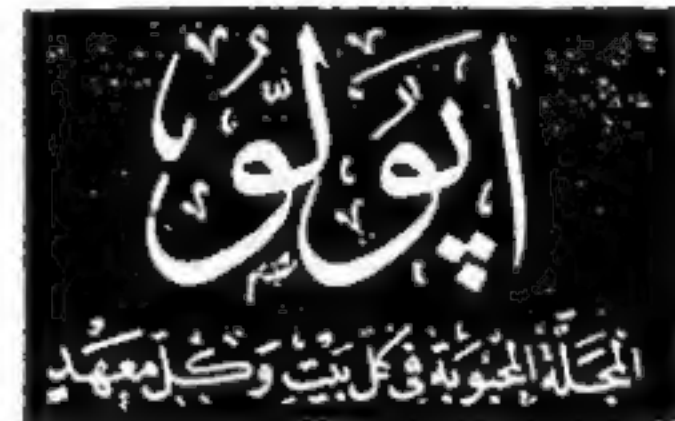 اپولّو
المجلّة المحبوبة في كلّ بيت وكلّ معهد